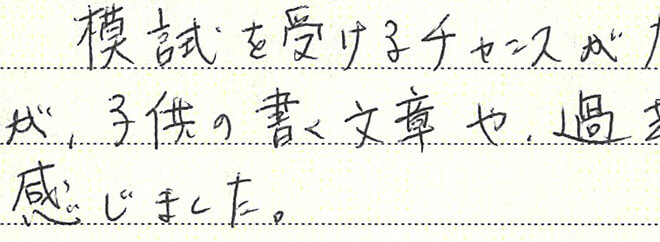 模試を受けるチャンスが
が、子供の書く文章や、過
感じました。